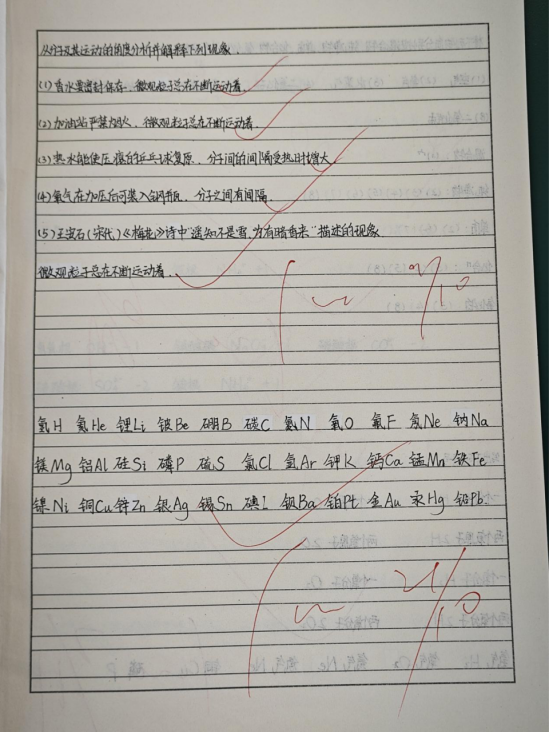 从分子及其运动的角度分析并解释下列现象.
(1)香水要密封保存. 微观粒子总在不断运动着.
(2)加油站严禁烟火. 微观粒子总在不断运动着.
(3)热水能使压瘪的乒乓球复原. 分子间的间隔受热时增大.
(4)氧气在加压后可装入钢瓶. 分子之间有间隔.
(5)王安石(宋代)《梅花》诗中"遥知不是雪,为有暗香来"描述的现象
微观粒子总在不断运动着.
氢H 氦He 锂Li 铍Be 硼B 碳C 氮N 氧O 氟F 氖Ne 钠Na
镁Mg 铝Al 硅Si 磷P 硫S 氯Cl 氩Ar 钾K 钙Ca 锰Mn 铁Fe
镍Ni 铜Cu 锌Zn 银Ag 锡Sn 碘I 钡Ba 铂Pt 金Au 汞Hg 铅Pb.